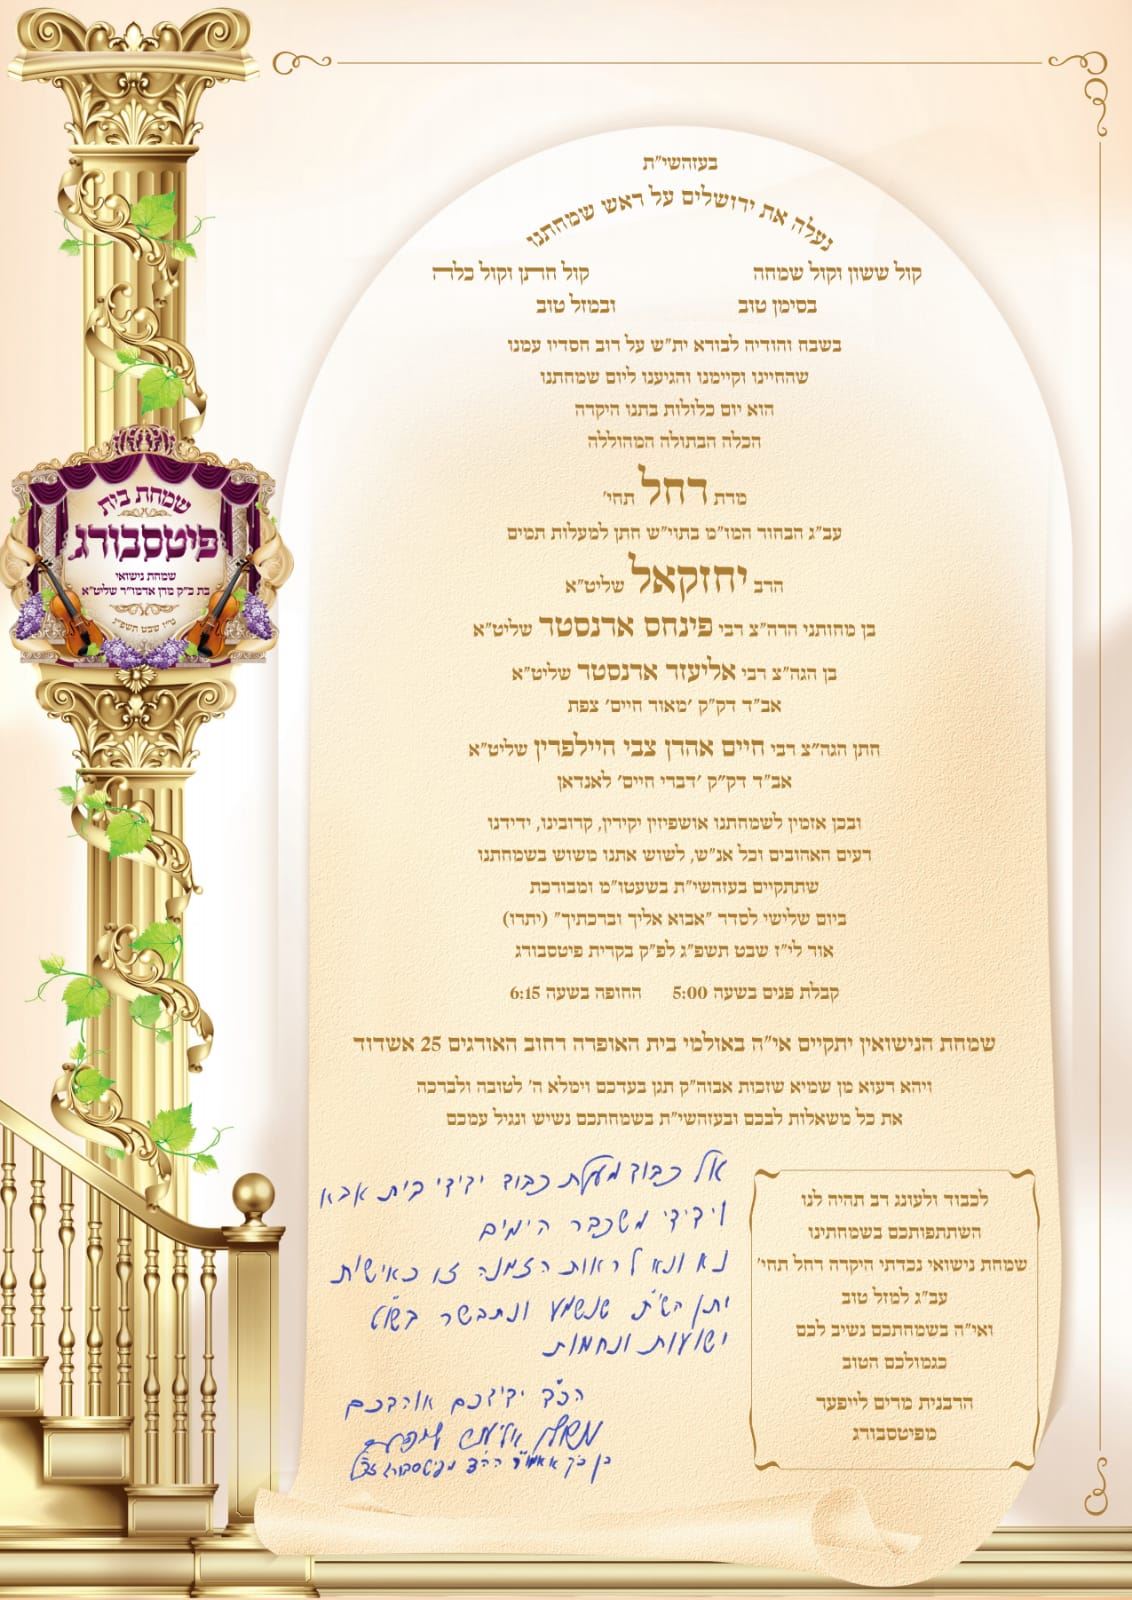 בעזהשי״ת
נעלה את ירושלים על ראש שמחתנו
קול ששון וקול שמחה קול חתן וקול כלה
בסימן טוב ובמזל טוב
בשבח והודיה לבורא ית״ש על רוב חסדיו עמנו
שהחיינו וקיימנו והגיענו ליום שמחתנו
הוא יום כלולות בתנו היקרה
הכלה הבתולה המהוללה
מרת רחל תחי׳
עב״ג הבחור המו״מ בתוי״ש חתן למעלות תמים
הרב יחזקאל שליט״א
בן מחותני הרה״צ רבי פינחס ארנסטר שליט״א
בן הגה״צ רבי אליעזר ארנסטר שליט״א
אב״ד דק״ק ׳מאור חיים׳ צפת
חתן הגה״צ רבי חיים אהרן צבי היילפרין שליט״א
אב״ד דק״ק ׳דברי חיים׳ לאנדאן
ובכן אזמין לשמחתנו אושפיזין יקירין, קרובינו, ידידנו
רעים האהובים וכל אנ״ש, לשוש אתנו משוש בשמחתנו
שתתקיים בעזהשי״ת בשעטו״מ ומבורכת
ביום שלישי לסדר ״אבוא אליך וברכתיך״ (יתרו)
אור לי״ז שבט תשפ״ג לפ״ק בקרית פיטסבורג
קבלת פנים בשעה 5:00 החופה בשעה 6:15
שמחת הנישואין יתקיים אי״ה באולמי בית האופרה רחוב האורגים 25 אשדוד
ויהא רעוא מן שמיא שזכות אבוה״ק תגן בעדכם וימלא ה׳ לטובה ולברכה
את כל משאלות לבכם ובעזהשי״ת בשמחתכם נשיש ונגיל עמכם
אל כבוד מעלת כבוד ידידי בית אבא
וידידי משכבר הימים
נא ונא לראות הזמנה זו כאישית
יתן הש״ת שנשמע ונתבשר בשו״ט
ישועות ונחמות
הכ״ד ידידכם אוהבכם
בן כ״ק אאמו״ר הרה״צ מפיטסבורג זצ״ל
לכבוד ולעונג רב תהיה לנו
השתתפותכם בשמחתינו
שמחת נישואי נכדתי היקרה רחל תחי׳
עב״ג למזל טוב
ואי״ה בשמחתכם נשיב לכם
כגמולכם הטוב
הרבנית מרים לייפער
מפיטסבורג
שמחת בית
פיטסבורג
שמחת נישואי
בת כ״ק מרן אדמו״ר שליט״א
ט״ז שבט תשפ״ג